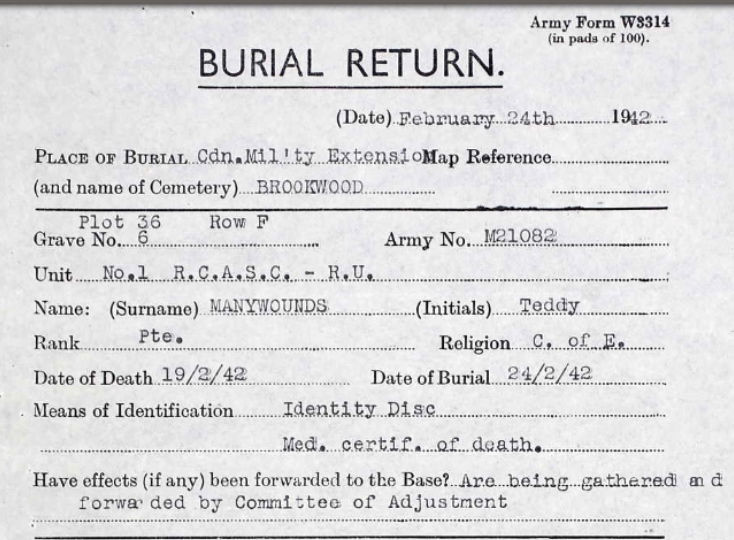 Army Form W3314
(in pads of 100).
BURIAL RETURN.
(Date) February 24th 1942
PLACE OF BURIAL Cdn.Mil'ty Extensio Map Reference
(and name of Cemetery) BROOKWOOD
Plot 36 Row F
Grave No. 6 Army No. M21082
Unit No.1 R.C.A.S.C. - R.U.
Name: (Surname) MANYWOUNDS (Initials) Teddy
Rank Pte. Religion C. of E.
Date of Death 19/2/42 Date of Burial 24/2/42
Means of Identification Identity Disc
Med. certif. of death.
Have effects (if any) been forwarded to the Base? Are being gathered and
forwarded by Committee of Adjustment